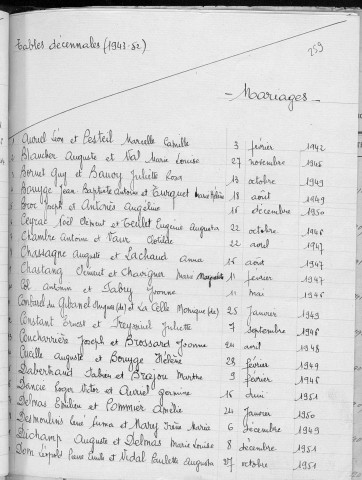 Tables décennales (1943-52)
259
- Mariages -
Auriel Léon et Pesteil Marcelle Camille 3 février 1942
Blancher Auguste et Val Marie Louise 27 novembre 1946
Bornet Guy et Banoy Juliette Rosa 13 octobre 1949
Bouyge Jean Baptiste Antoine et Faurguet 18 août 1949
Broc Joseph et Antarès Angeline 16 décembre 1950
Ceyrac Noël Clément et Teillet Eugénie Augusta 22 octobre 1946
Chambre Antoine et Faur Clotilde 22 avril 1947
Chassagne Auguste et Lachaud Anna 16 août 1947
Chastang Clément et Marie Marguerite 11 février 1947
Col Antonin et Fabry Yvonne 11 mai 1946
et La Celle Monique (de) 25 janvier 1949
Constant Ernest et Treyssinel Juliette 7 septembre 1946
Coucharrière Joseph et Brossard Yvonne 24 août 1948
Cueille Auguste et Bouyge Hélène 28 février 1949
Daberhault Fabien et Brajou Marthe 9 février 1946
Dancié Roger Victor et Auriel Germine 16 Juin 1951
Delmas Emilien et Pommier Amélie 24 Janvier 1950
Desmoulins René Luma et Mary Irène Marie 6 Décembre 1949
Duchamp Auguste et Delmas Marie Louise 8 décembre 1951
Dom Léopold Emile et Vidal Paulette Augusta 27 octobre 1951